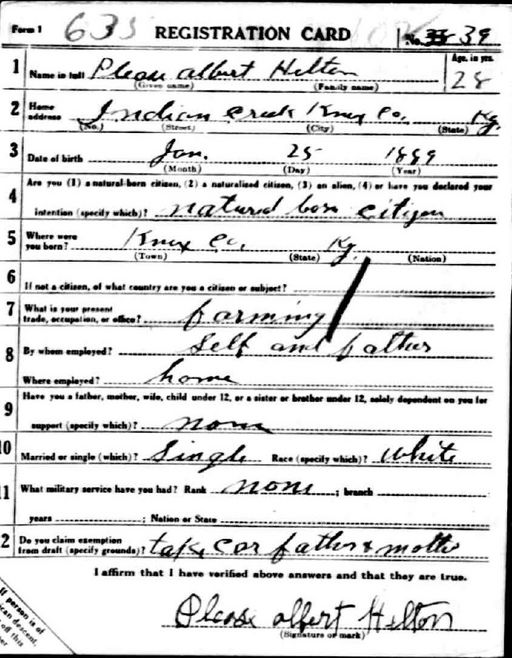 Form 1 635 REGISTRATION CARD No. 39
1 Name in full Please albert Helton Age, in yrs.
(Given name) (Family name) 28
2 Home address Indian Creek Knox Co. Ky.
(No.) (Street) (City) (State)
3 Date of birth Jan. 25 1889
(Month) (Day) (Year)
4 Are you (1) a natural-born citizen, (2) a naturalized citizen, (3) an alien, (4) or have you declared your
intention (specify which)? natural born citizen
5 Where were you born? Knox Co. Ky.
(Town) (State) (Nation)
6 If not a citizen, of what country are you a citizen or subject?
7 What is your present trade, occupation, or office? farming
8 By whom employed? Self and father
Where employed? home
9 Have you a father, mother, wife, child under 12, or a sister or brother under 12, solely dependent on you for
support (specify which)? none
10 Married or single (which)? Single Race (specify which)? White
11 What military service have you had? Rank none ; branch
years ; Nation or State
2 Do you claim exemption from draft (specify grounds)? take car father & mother
I affirm that I have verified above answers and that they are true.
Please albert Helton
(Signature or mark)
If person is of